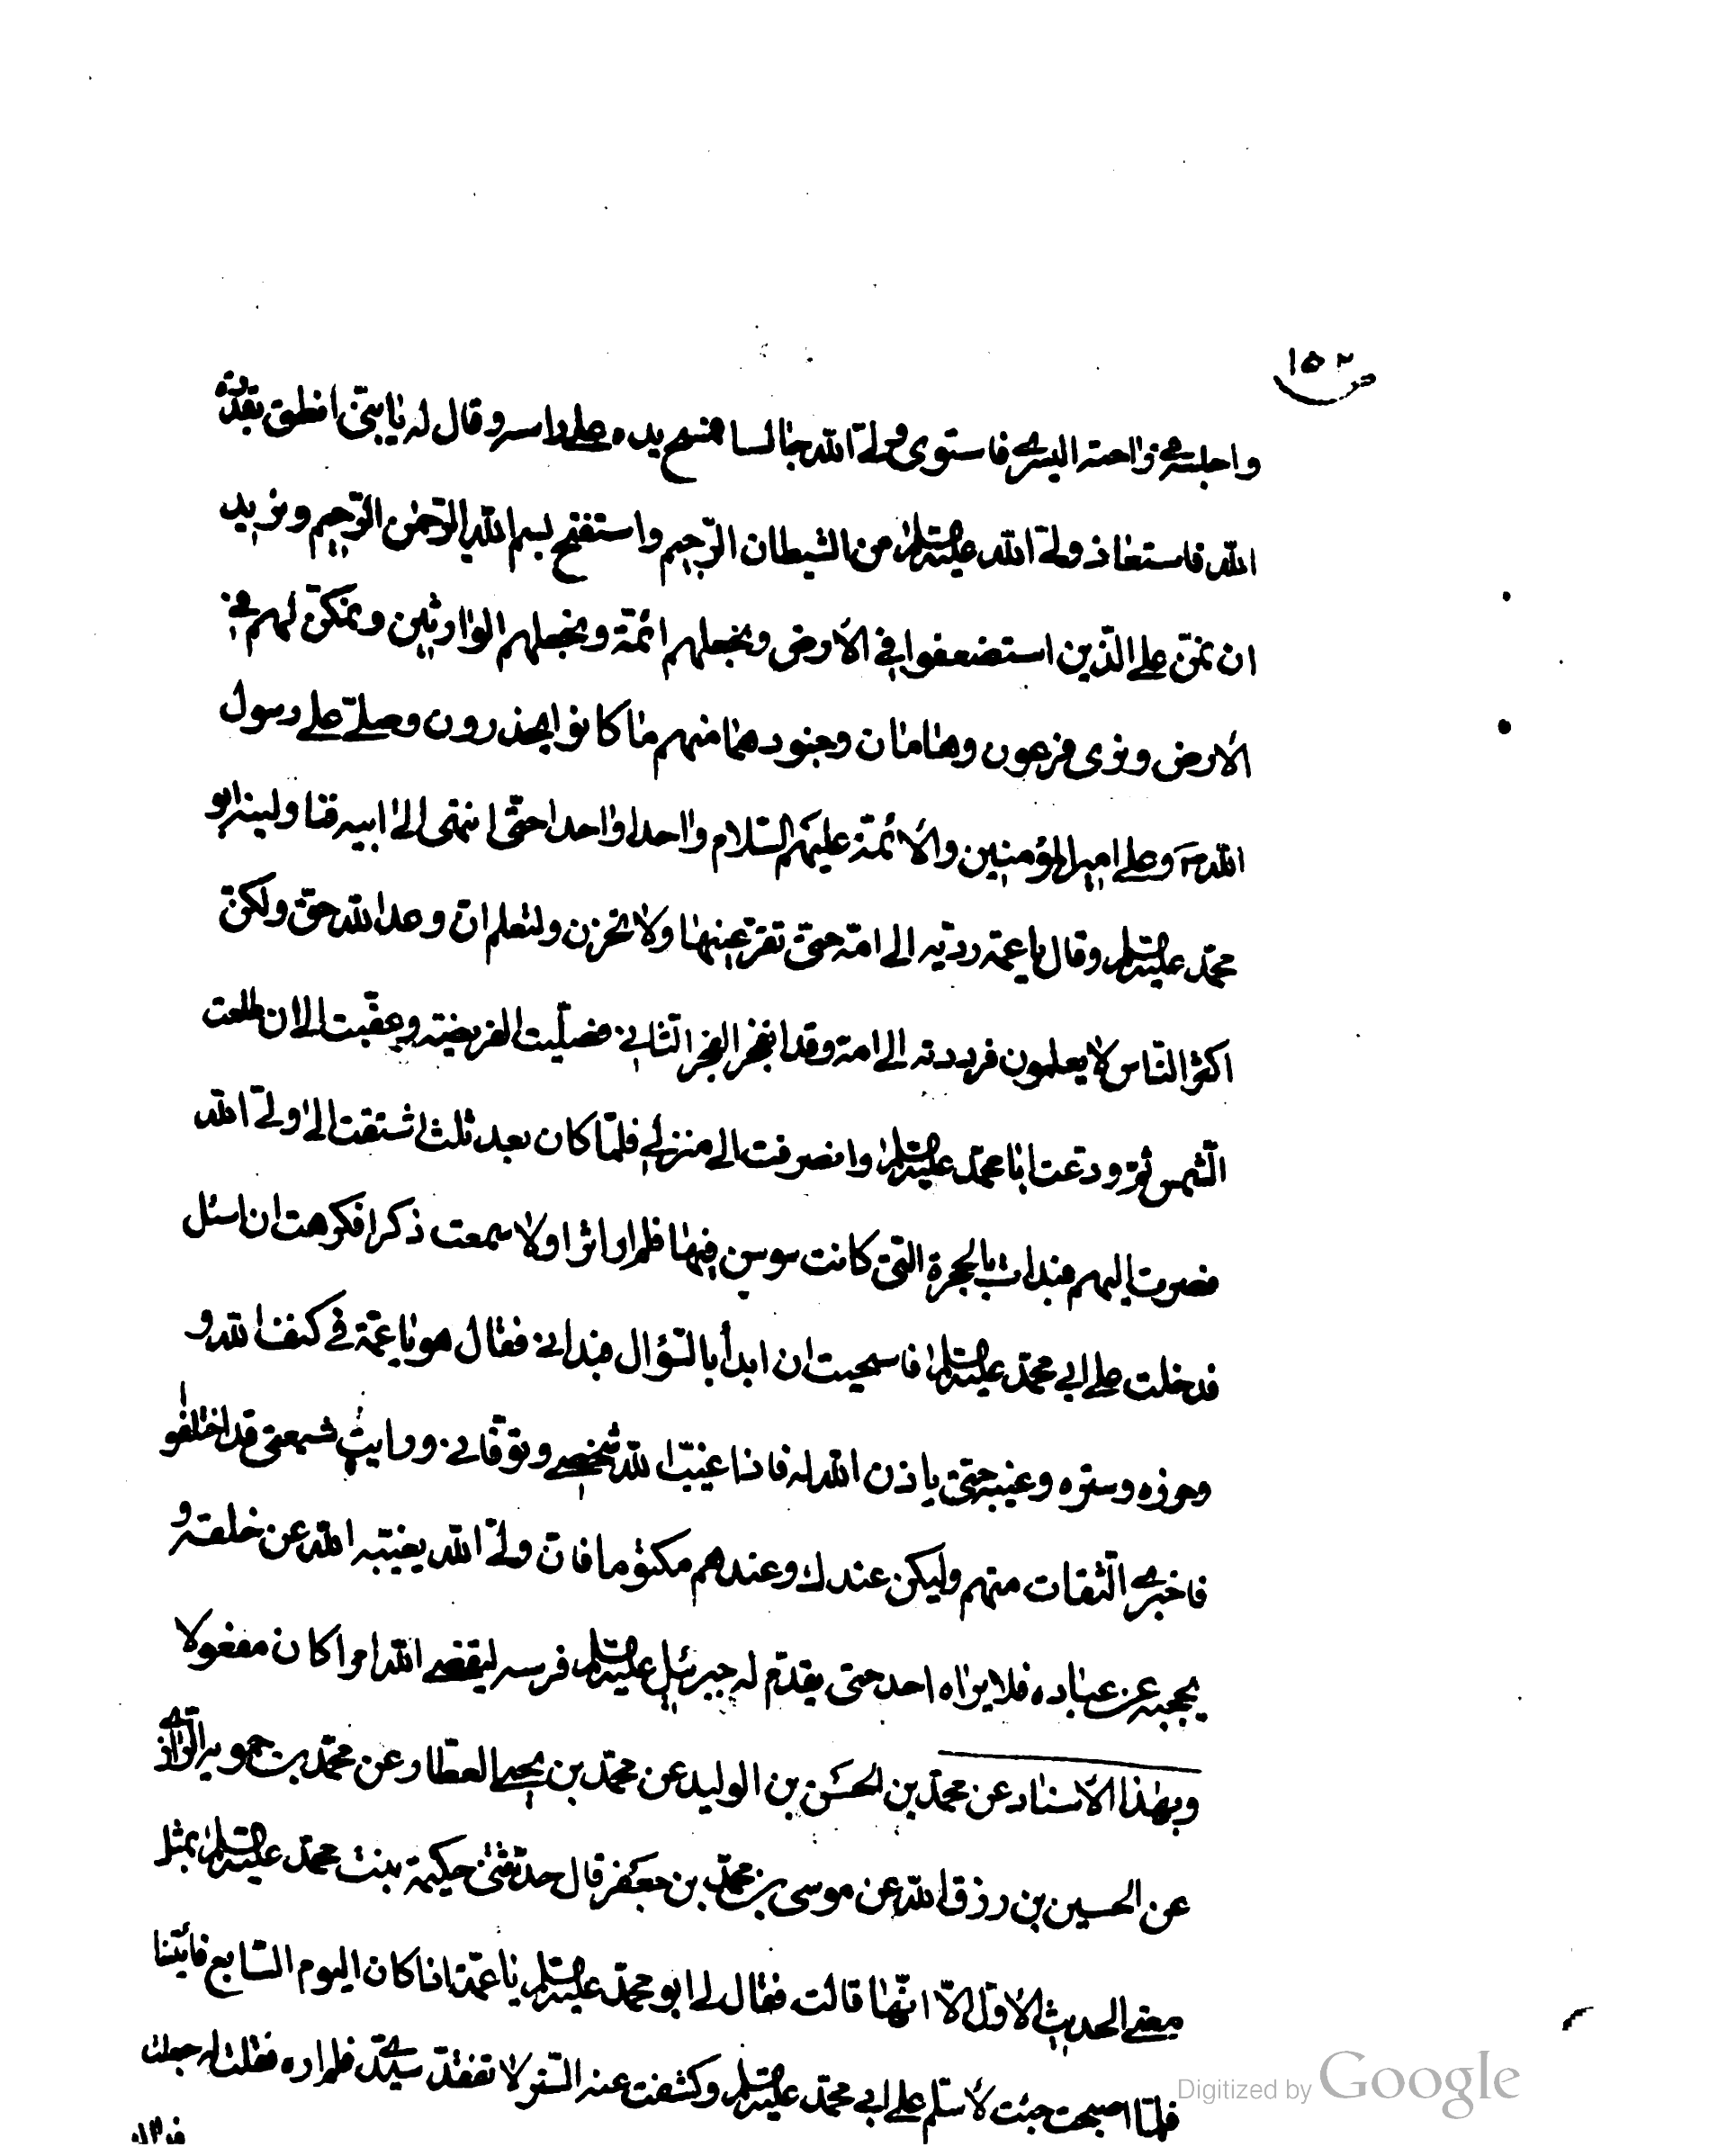 ١٥٢
واجلسه في راحته اليسرى فاستوى ولي الله جالسا فمسح يده على راسه وقال له يا بني انطق بقدرة
الله فاستعاذ ولي الله عليه السلام من الشيطان الرجيم واستفتح بسم الله الرحمن الرحيم ونريد
ان نمنّ على الذين استضعفوا في الأرض ونجعلهم ائمة ونجعلهم الوارثين ونمكّن لهم في
الأرض ونرى فرعون وهامان وجنودهما منهم ما كانوا يحذرون وصلّى على رسول
الله ص وعلى امير المؤمنين والأئمّة عليهم السّلام واحدا واحدا حتّى انتهى الى ابيه فناولنيه ابو
محمّد عليه السلام وقال يا عمة ردّيه الى امّه حتّى تقرّ عينها ولا تحزن ولتعلم انّ وعد الله حق ولكنّ
اكثر النّاس لا يعلمون فرددته الى امه وقد انفجر الفجر الثاني فصلّيت الفريضة وعقّبت الى ان طلعت
الشّمس ثمّ ودّعت ابا محمّد عليه السلام وانصرفت الى منزلي فلمّا كان بعد ثلث اشتقت الى وليّ الله
فصرت اليهم فبدات بالحجرة التي كانت سوسن فيها فلم ار اثرا ولا سمعت ذكرا فكرهت ان اسئل
فدخلت على ابي محمّد عليه السلام فاستحييت ان ابدأ بالسّؤال فبداني فقال هو يا عمّة في كنف الله و
حرزه وستره وغيبه حتّى ياذن الله له فاذا غيّب الله شخصي وتوفّاني ورايت شيعتي قد اختلفوا
فاخبري الثّقات منهم وليكن عندك وعندهم مكتوما فانّ وليّ الله يغيّبه الله عن خلقه و
يحجبه عن عباده فلا يراه احد حتى يقدّم له جبرئيل عليه السلام فرسه ليقضي الله امرا كان مفعولا
وبهذا الأسناد عن محمّد بن الحسَن بن الوليد عن محمّد بن يحيى العطّار عن محمّد بن حمويه الرّازي
عن الحسين بن رزق الله عن موسى بن محمّد بن جعفر قال حدّثتني حكيمة بنت محمّد عليه السلام بمثل
معنى الحديث الأوّل الّا انّها قالت فقال لي ابو محمّد عليه السلام يا عمّة اذا كان اليوم السّابع فأتينا
فلمّا اصبحت جئت لأسلّم على ابي محمّد عليه السلام وكشفت عنه السّتر لا تفقّد سيّدي فلم اره فقلت له جعلت
فداك
Digitized by Google